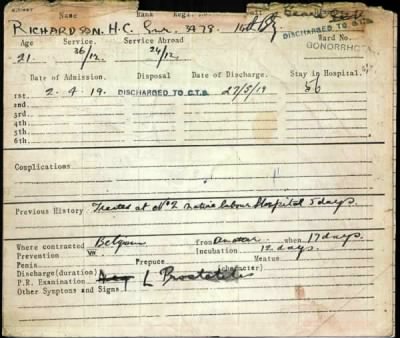 Name Rank Regt.
RICHARDSON. H.C. Gnr. 3478.
DISCHARGED TO
Age Service. Service. Ward No.
21. 36/12. 24/12. GONORRHOEA
Date of Admission. Disposal Date of Discharge. Stay in Hospital.
1st 2.4.19 DISCHARGED TO C.T.B. 27/5/19 56
2nd
3rd
4th
5th
6th
Complications
Previous History. Treated at No 2 native labour Hospital 5 days.
Where contracted Belgium from when 17 days.
Prevention Incubation 12 days.
Penis Prepuce Meatus
Discharge(duration) (character)
P.R. Examination L Prostatitis
Other Symptoms and Signs